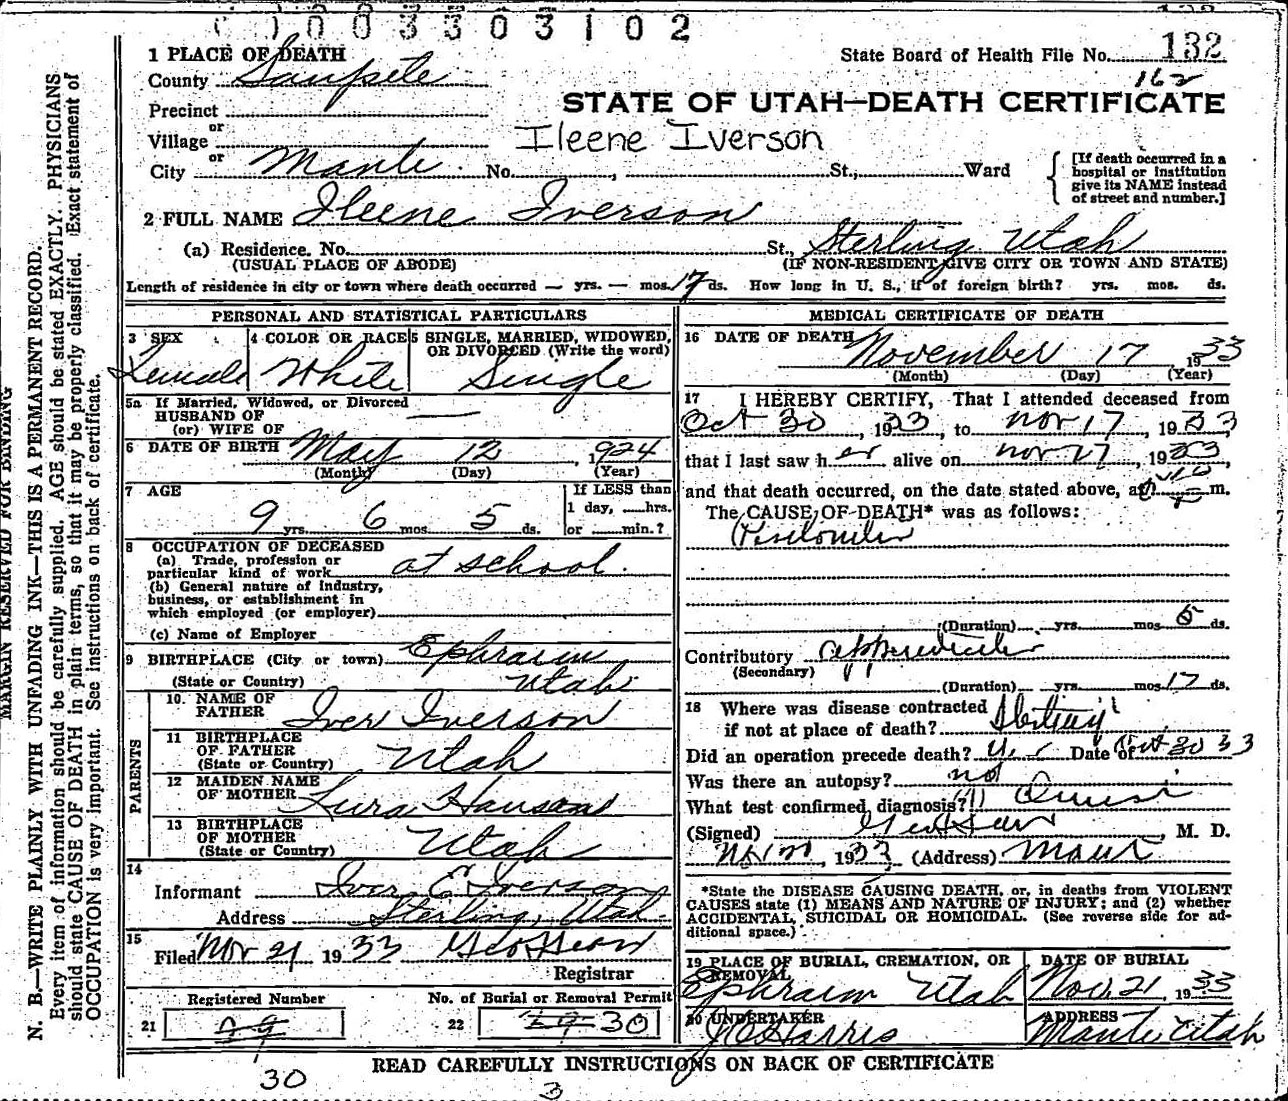 0 0 0 3 3 0 3 1 0 2
1 PLACE OF DEATH
State Board of Health File No. 132
County Sanpete
162
STATE OF UTAH—DEATH CERTIFICATE
Precinct
or
Village
Ileene Iverson
or
City Manti No. , St., Ward
[If death occurred in a hospital or institution give its NAME instead of street and number.]
2 FULL NAME Ileene Iverson
(a) Residence. No. St., Sterling Utah
(USUAL PLACE OF ABODE) (IF NON-RESIDENT GIVE CITY OR TOWN AND STATE)
Length of residence in city or town where death occurred — yrs. — mos. 17 ds. How long in U. S., if of foreign birth? yrs. mos. ds.
PERSONAL AND STATISTICAL PARTICULARS
3 SEX
Female
4 COLOR OR RACE
White
5 SINGLE, MARRIED, WIDOWED, OR DIVORCED (Write the word)
Single
5a If Married, Widowed, or Divorced
HUSBAND OF
(or) WIFE OF
6 DATE OF BIRTH May 12, 1924
(Month) (Day) (Year)
7 AGE
9 yrs. 6 mos. 5 ds.
If LESS than
1 day, hrs.
or min.?
8 OCCUPATION OF DECEASED
(a) Trade, profession or
particular kind of work at school.
(b) General nature of industry,
business, or establishment in
which employed (or employer)
(c) Name of Employer
9 BIRTHPLACE (City or town) Ephraim
(State or Country) Utah
PARENTS
10 NAME OF FATHER Iver Iverson
11 BIRTHPLACE OF FATHER (State or Country) Utah
12 MAIDEN NAME OF MOTHER Hansen
13 BIRTHPLACE OF MOTHER (State or Country) Utah
14
Informant Iver E Iverson
Address Sterling, Utah
15
Filed Nov 21 1933
Registrar
Registered Number
21 29
30
No. of Burial or Removal Permit
22 29 30
MEDICAL CERTIFICATE OF DEATH
16 DATE OF DEATH November 17 1933
(Month) (Day) (Year)
17 I HEREBY CERTIFY, That I attended deceased from
Oct 30, 1933, to Nov 17, 1933,
that I last saw her alive on Nov 17, 1933,
and that death occurred, on the date stated above, at m.
The CAUSE OF DEATH* was as follows:
(Duration) yrs. mos. 5 ds.
Contributory appendicitis
(Secondary)
(Duration) yrs. mos. 17 ds.
18 Where was disease contracted
if not at place of death? Sterling
Did an operation precede death? Yes Date of Oct 30 33
Was there an autopsy? no
What test confirmed diagnosis?
(Signed) , M. D.
, 1933 (Address) Manti
*State the DISEASE CAUSING DEATH, or, in deaths from VIOLENT CAUSES state (1) MEANS AND NATURE OF INJURY; and (2) whether ACCIDENTAL, SUICIDAL OR HOMICIDAL. (See reverse side for additional space.)
19 PLACE OF BURIAL, CREMATION, OR REMOVAL
Ephraim Utah
DATE OF BURIAL
Nov. 21, 1933
20 UNDERTAKER
Harris
ADDRESS
Manti Utah
READ CAREFULLY INSTRUCTIONS ON BACK OF CERTIFICATE
3
MARGIN RESERVED FOR BINDING
N. B.—WRITE PLAINLY WITH UNFADING INK—THIS IS A PERMANENT RECORD.
Every item of information should be carefully supplied. AGE should be stated EXACTLY. PHYSICIANS
should state CAUSE OF DEATH in plain terms, so that it may be properly classified. Exact statement of
OCCUPATION is very important. See instructions on back of certificate.